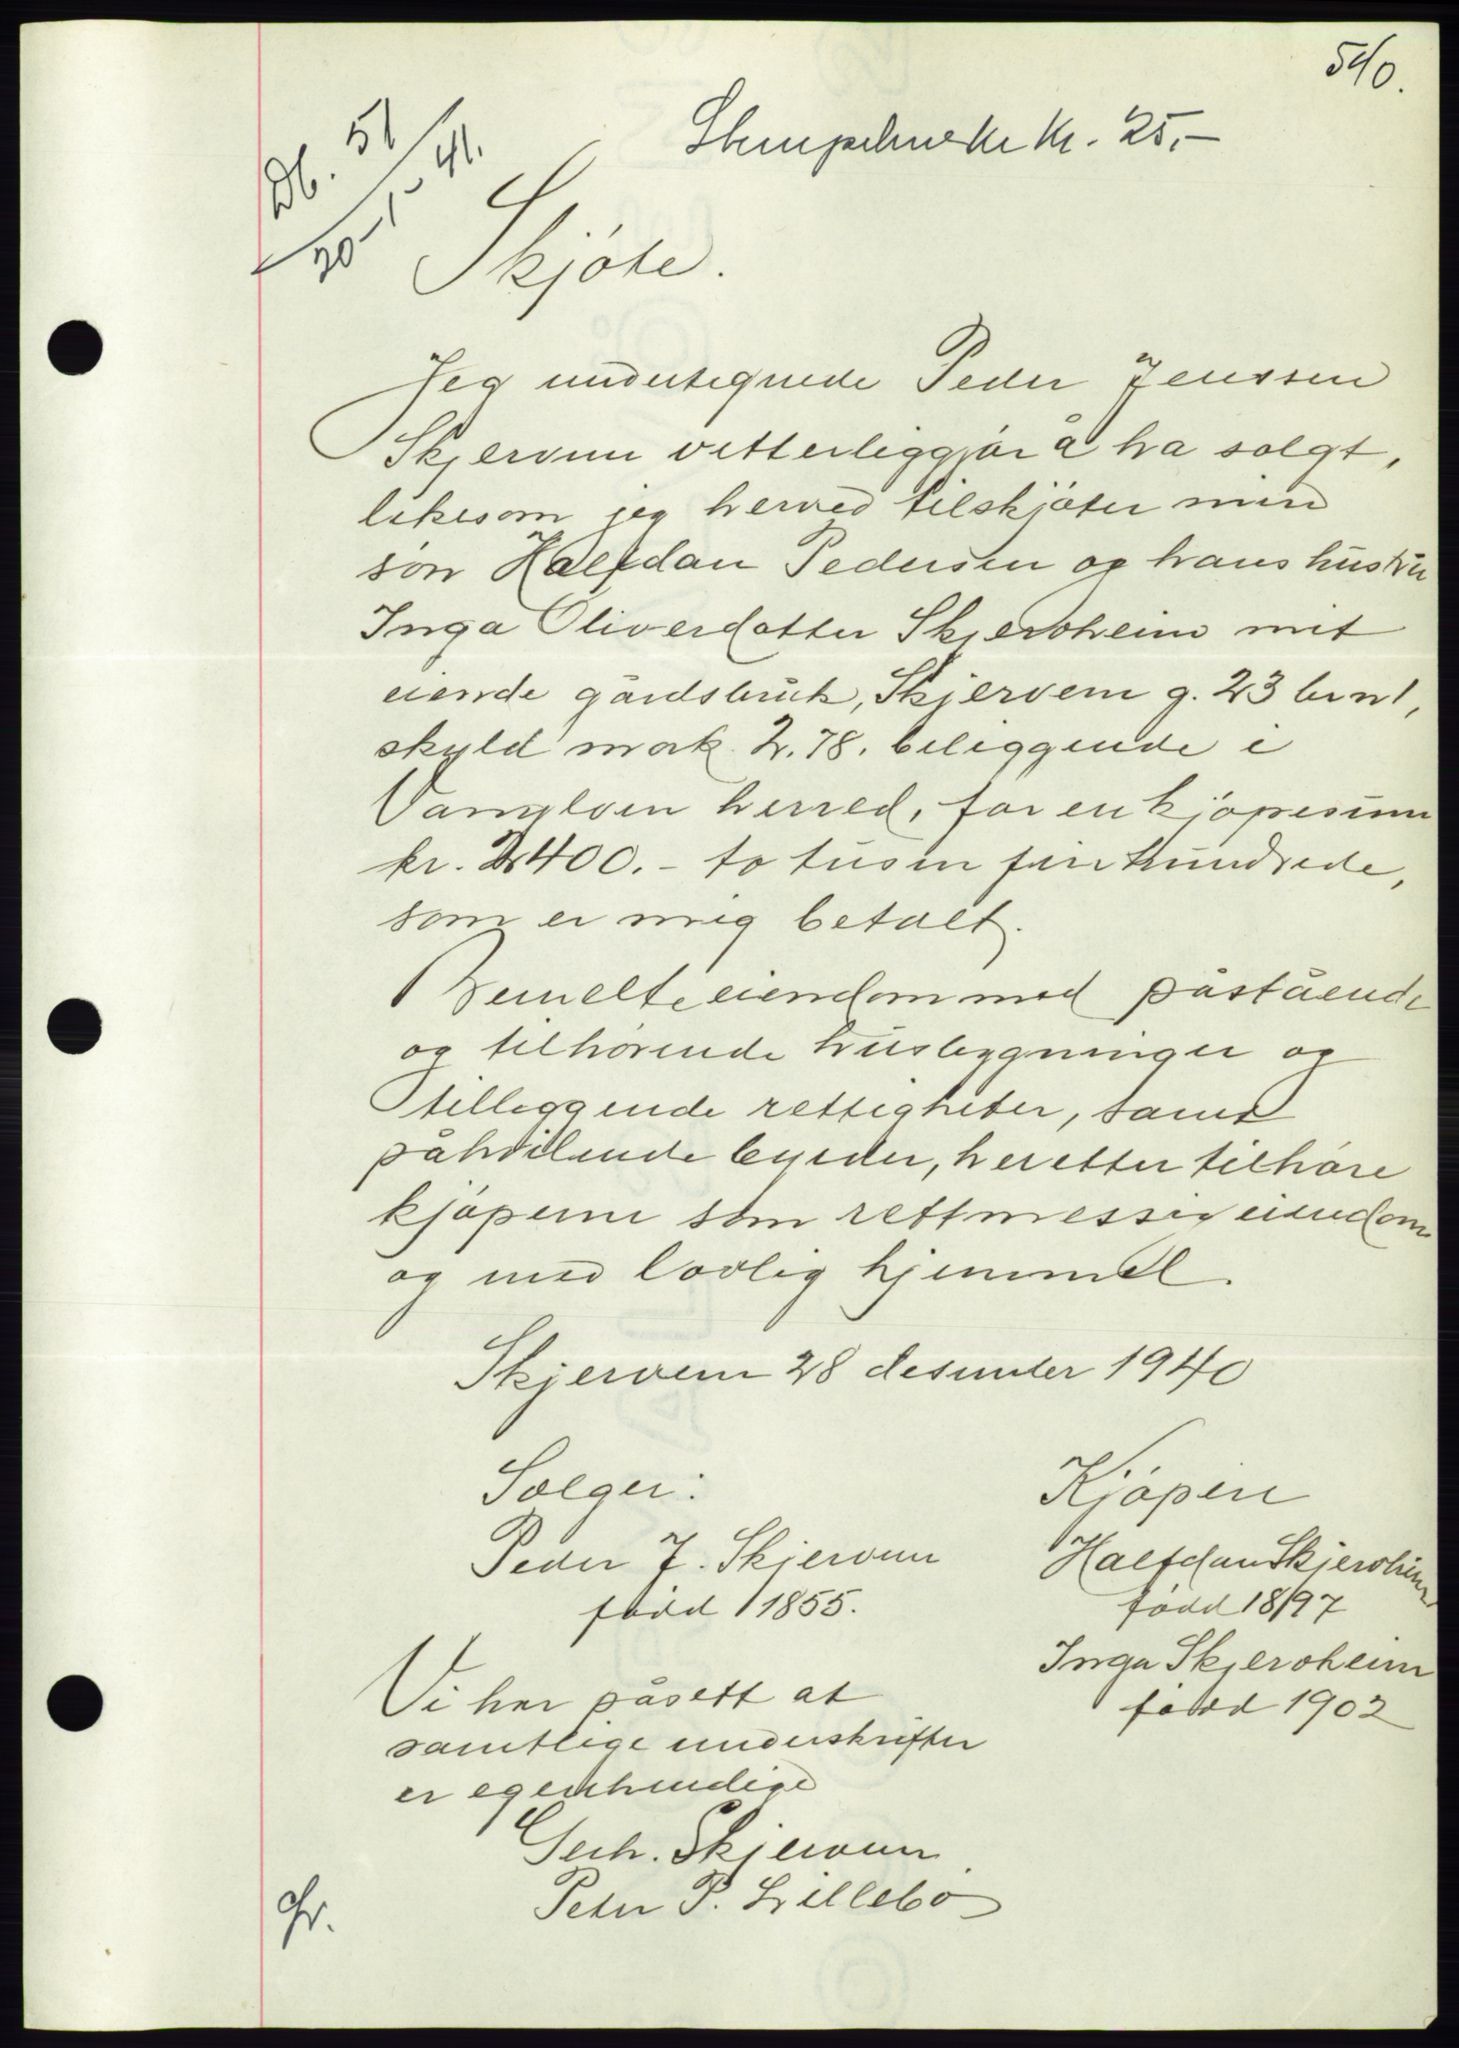 540.
Db. 51
20-1-41.
Stempelmerke kr. 25,-
Skjöte.
Jeg undertegnede Peder Jenssen
Skjervem vitterliggjör å ha solgt,
likesom jeg herved tilskjöter min
sön Halfdan Pedersen og hans hustru
Inga Oliverdatter Skjervheim mit
eiende gårdsbruk, Skjervem g. 23 br n 1,
skyld mark 2.78. beliggende i
Vamylven herred, for en kjöpesum
kr. 2400.- to tusen firehundrede,
som er mig betalt.
Bemelte eiendom med påstående
og tilhörende husbygninger og
tilleggende rettigheter, samt
påhvilende byrder, heretter tilhöre
kjöperne som rettmessig eiendom
og med lovlig hjemmel.
Skjervem 28 desember 1940
Sælger:
Kjöpere
Peder J. Skjervem
Halfdan Skjervheim
född 1855.
född 1897
Inga Skjervheim
född 1902
Vi har påsett at
samtlige underskrifter
er egenhendige
Gerh. Skjervem
Peter P. Lillebö